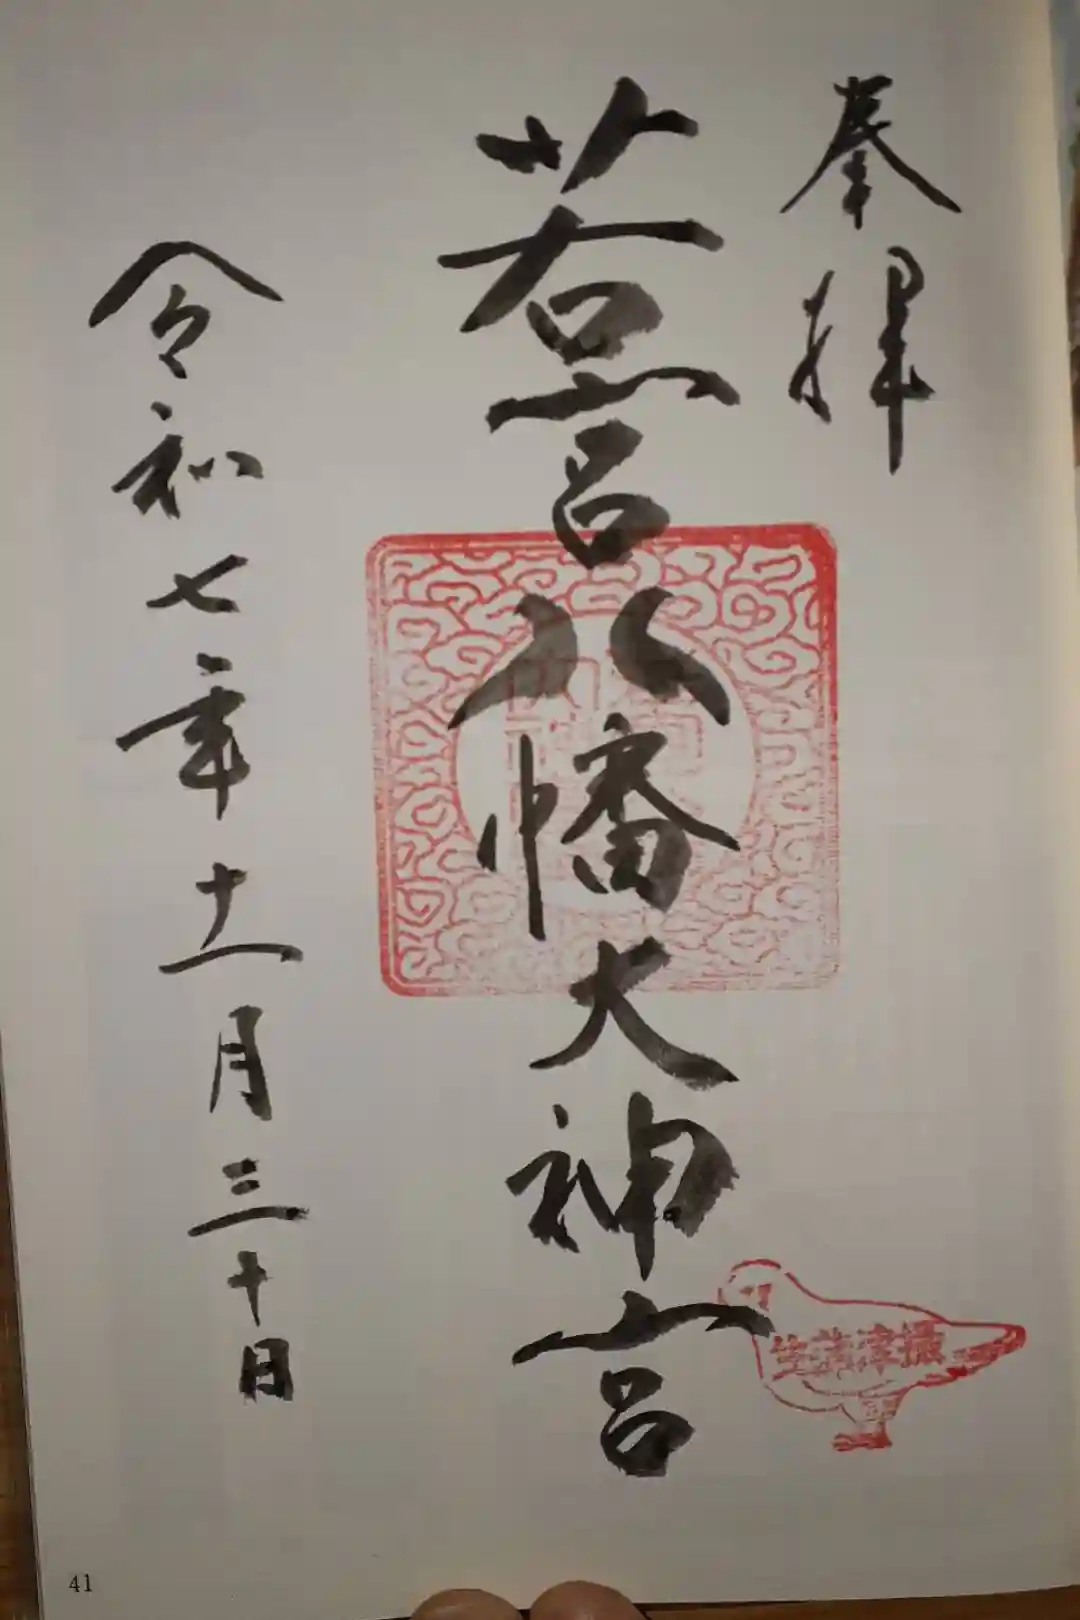 奉拝
若宮八幡大神宮
攝津蒲生
令和七年十一月三十日
41